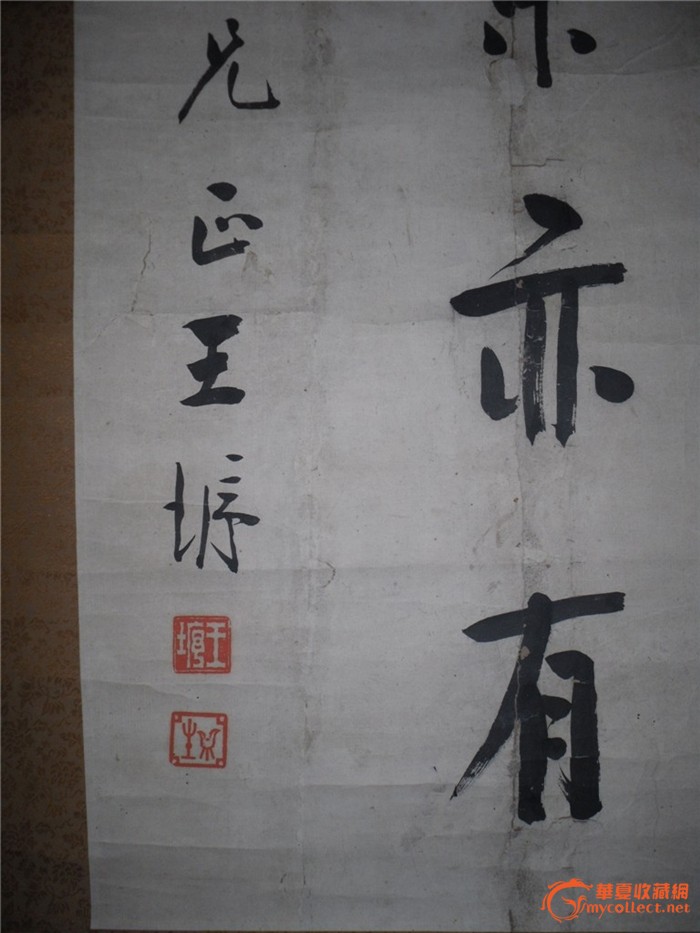 亦有
兄正王垿
王垿
華夏收藏網
mycollect.net